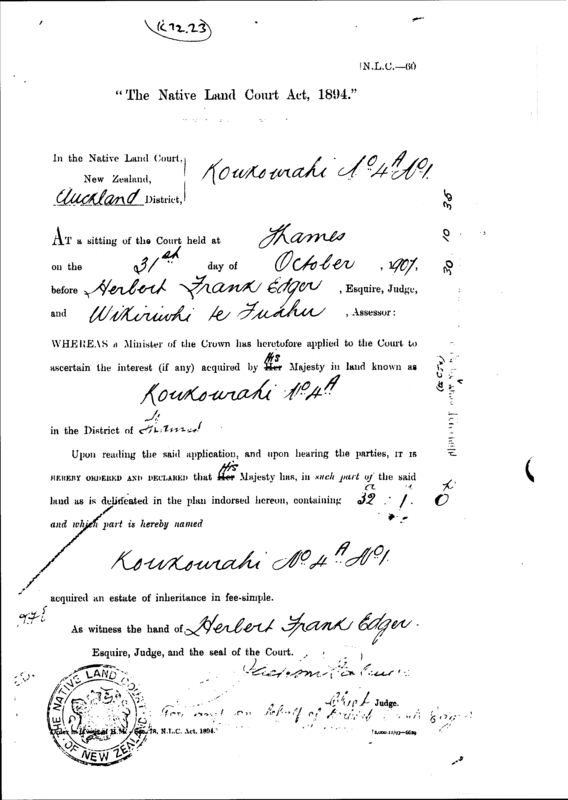 K 72.23
[N.L.C.—60
"The Native Land Court Act, 1894."
In the Native Land Court,
New Zealand,
Auckland District,
Koukourahi No. 4A No 1.
AT a sitting of the Court held at Thames
on the 31st day of October, 1907,
before Herbert Frank Edger, Esquire, Judge,
and Wikiriwhi te Tuahu, Assessor:
WHEREAS a Minister of the Crown has heretofore applied to the Court to
His
ascertain the interest (if any) acquired by Her Majesty in land known as
Koukourahi No 4A
in the District of Thames
Upon reading the said application, and upon hearing the parties, IT IS
His
HEREBY ORDERED AND DECLARED that Her Majesty has, in such part of the said
land as is delineated in the plan indorsed hereon, containing 32 : 1. 0
and which part is hereby named
Koukourahi No. 4A No 1.
acquired an estate of inheritance in fee-simple.
As witness the hand of Herbert Frank Edger.
Esquire, Judge, and the seal of the Court.
Chief Judge.
For and on behalf of
THE NATIVE LAND COURT OF NEW ZEALAND
Order in favour of H.M.—Sec. 78, N.L.C. Act, 1894.
30 10 35